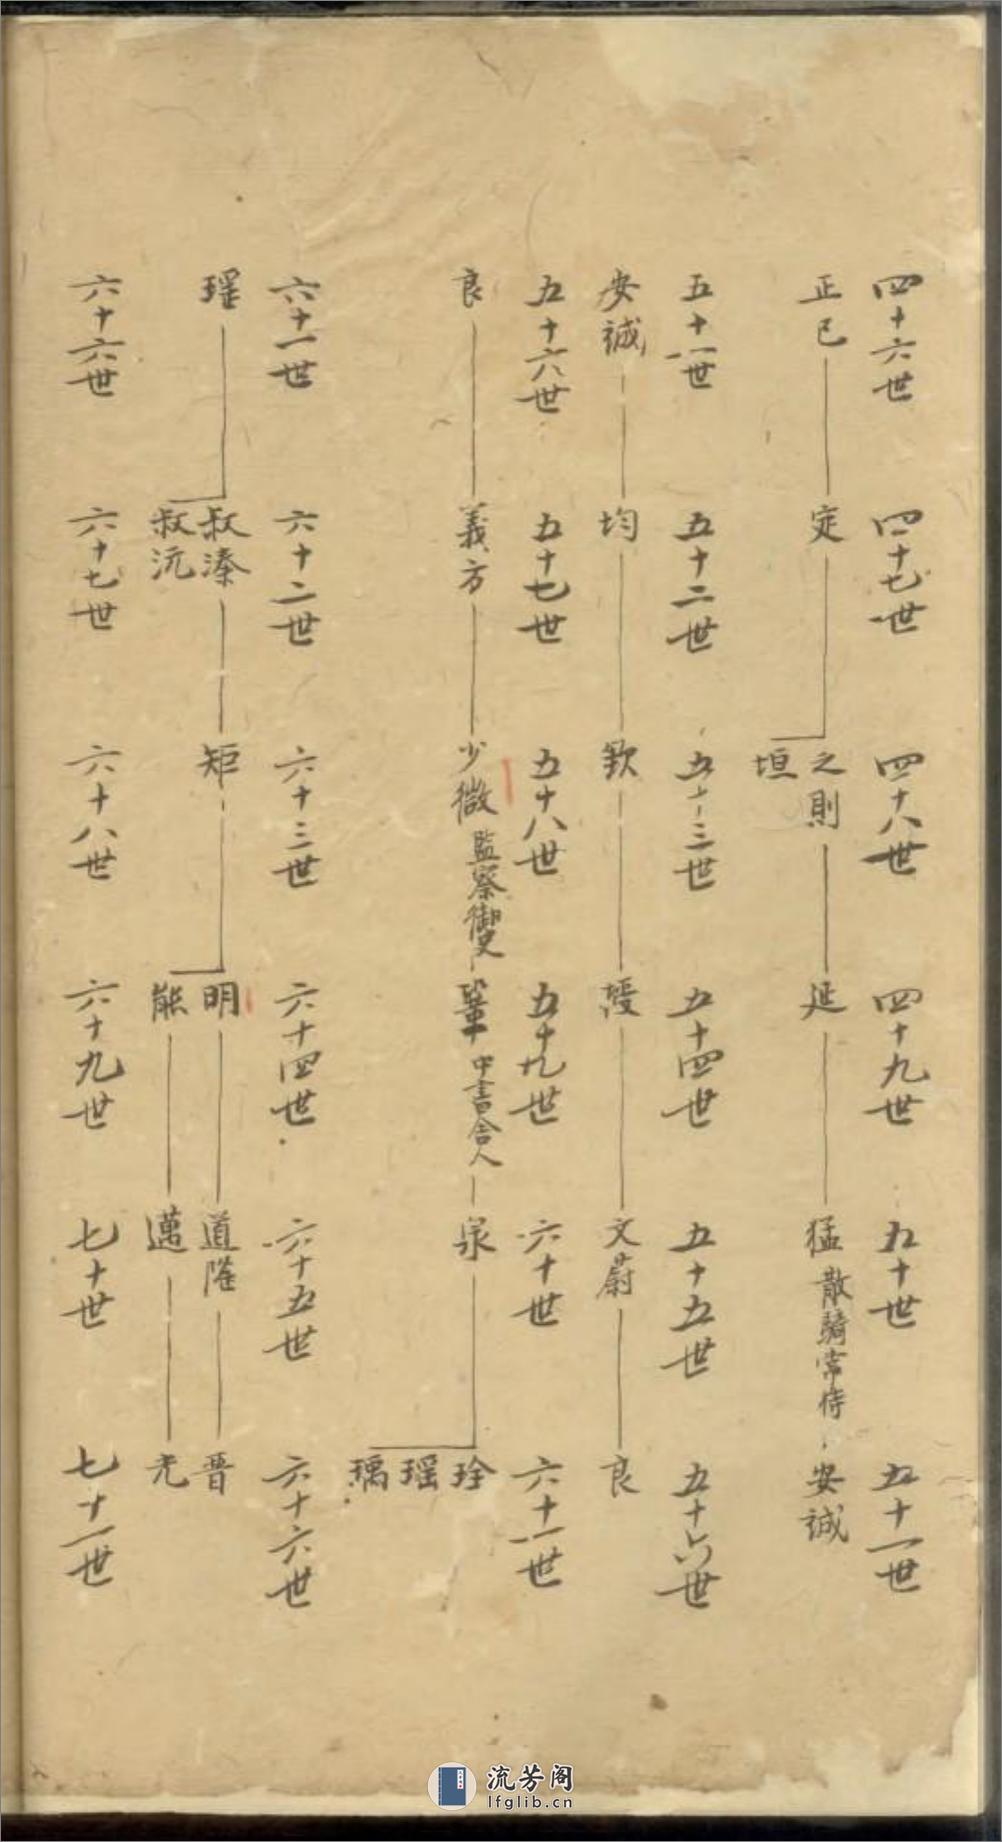 四十六世 四十七世 四十八世 四十九世 五十世 五十一世
正己 定 之則 延 猛 散騎常侍 安誠
垣
五十一世 五十二世 五十三世 五十四世 五十五世 五十六世
安誠 均 欽 授 文蔚 良
五十六世 五十七世 五十八世 五十九世 六十世 六十一世
良 義方 少微 監察御史 鞏 中書舍人 泉 珍
瑶
瑀
六十一世 六十二世 六十三世 六十四世 六十五世 六十六世
瑶 叔溱 矩 明 道隆 晋
叔沅 熊 邁 光
六十六世 六十七世 六十八世 六十九世 七十世 七十一世
流芳阁
lfglib.cn